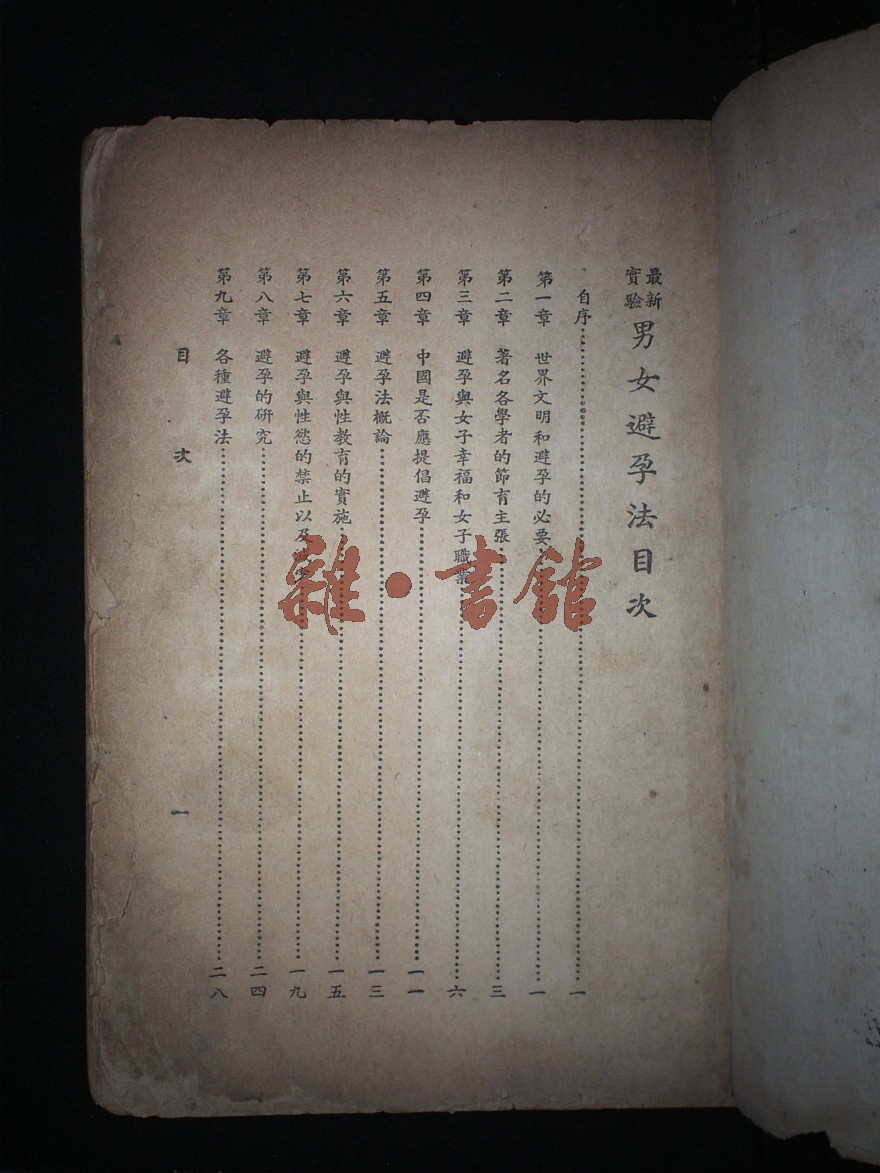 最新實驗 男女避孕法目次
自序……一
第一章 世界文明和避孕的必要……一
第二章 著名各學者的節育主張……三
第三章 避孕與女子幸福和女子職業……六
第四章 中國是否應提倡避孕……一一
第五章 避孕法概論……一三
第六章 避孕與性教育的實施……一五
第七章 避孕與性慾的禁止以及……一九
第八章 避孕的研究……二四
第九章 各種避孕法……二八
目次
一
雜·書館